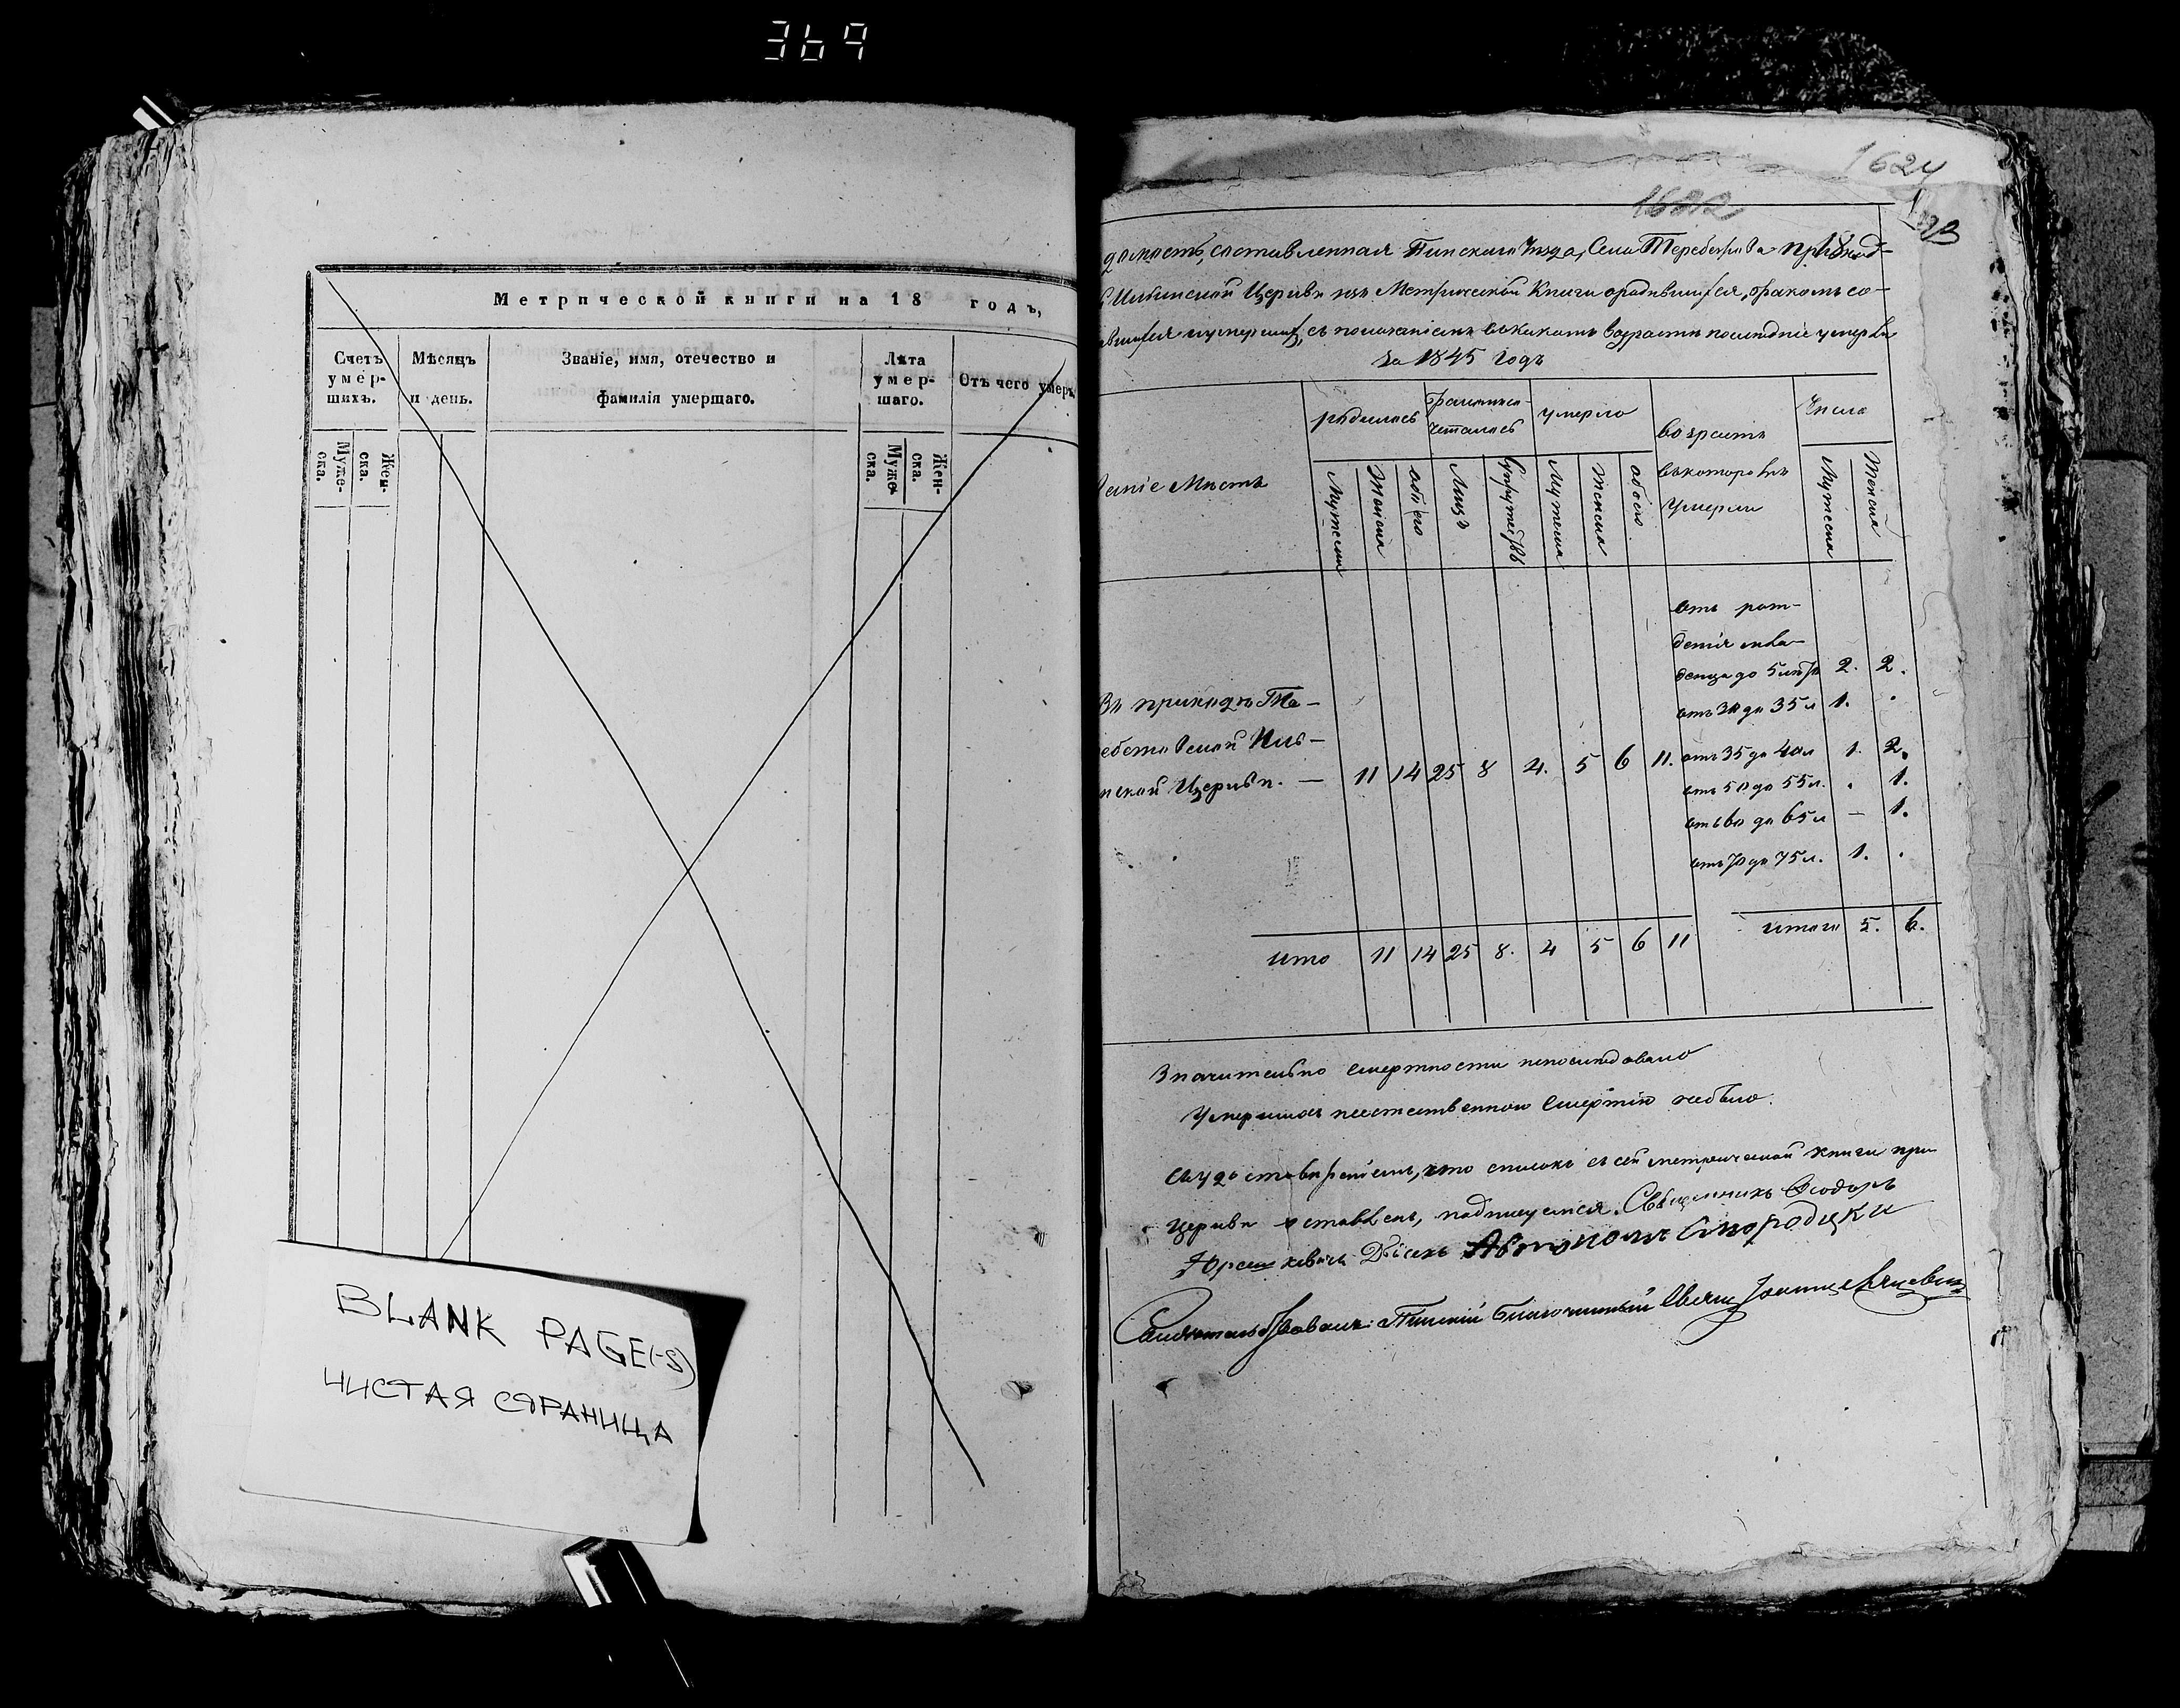 369
Метрической книги на 18 годъ,
Счетъ умер-шихъ.
Мѣсяцъ и день.
Званіе, имя, отечество и фамилія умершаго.
Лѣта умер-шаго.
Отъ чего умеръ
Муже-ска.
Жен-ска.
Муже-ска.
Жен-ска.
BLANK PAGE(-S)
ЧИСТАЯ СТРАНИЦА
1624
1622
домость, составленная Пинскаго Уѣзда, Села Теребежова приход-
Ильинской Церкви изъ Метрической Книги о родившихся, бракомъ со-
умершихъ, съ показаніемъ въ какомъ возрасте последніе умерли
За 1845 годъ
родилось
бракомъ со-четалось
умерло
возрастъ въ которомъ умерли
Число
Мужеска
Женска
обоего
Лицъ
Супружествъ
Мужеска
Женска
обоего
Мужеска
Женска
ваніе Мѣстъ
отъ рож-
денія мла-
денца до 5 лѣтъ 2. 2.
отъ 30 до 35 л 1. .
отъ 35 до 40 л 1. 2.
отъ 50 до 55 л. . 1.
отъ 60 до 65 л — 1.
отъ 70 до 75 л. 1. .
Въ приходѣ Те-
Иль-
нской Церкви. — 11 14 25 8 4. 5 6 11.
итого 5. 6.
ито 11 14 25 8. 4 5 6 11
Значительно смертности непоследовало
Умершихъ неестественною смертію небыло.
Въ удостовѣреніемъ, что списокъ съ сей метрической книги при
Церкви оставленъ, подписуемся. Священникъ Ѳеодоръ
Дьячекъ
Пинскій Благочинный